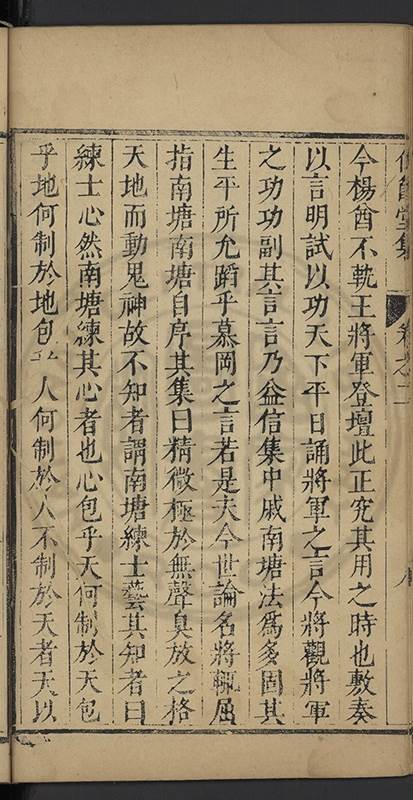 今楊酋不軌王將軍登壇此正究其用之時也敷奏
以言明試以功天下平日誦將軍之言今將觀將軍
之功功副其言言乃益信集中戚南塘法爲多固其
生平所允蹈乎慕岡之言若是夫今世論名將輒屈
指南塘南塘自序其集曰精微極於無聲臭放之格
天地而動鬼神故不知者謂南塘練士藝其知者曰
練士心然南塘練其心者也心包乎天何制於天包
乎地何制於地包 人何制於人不制於天者天以